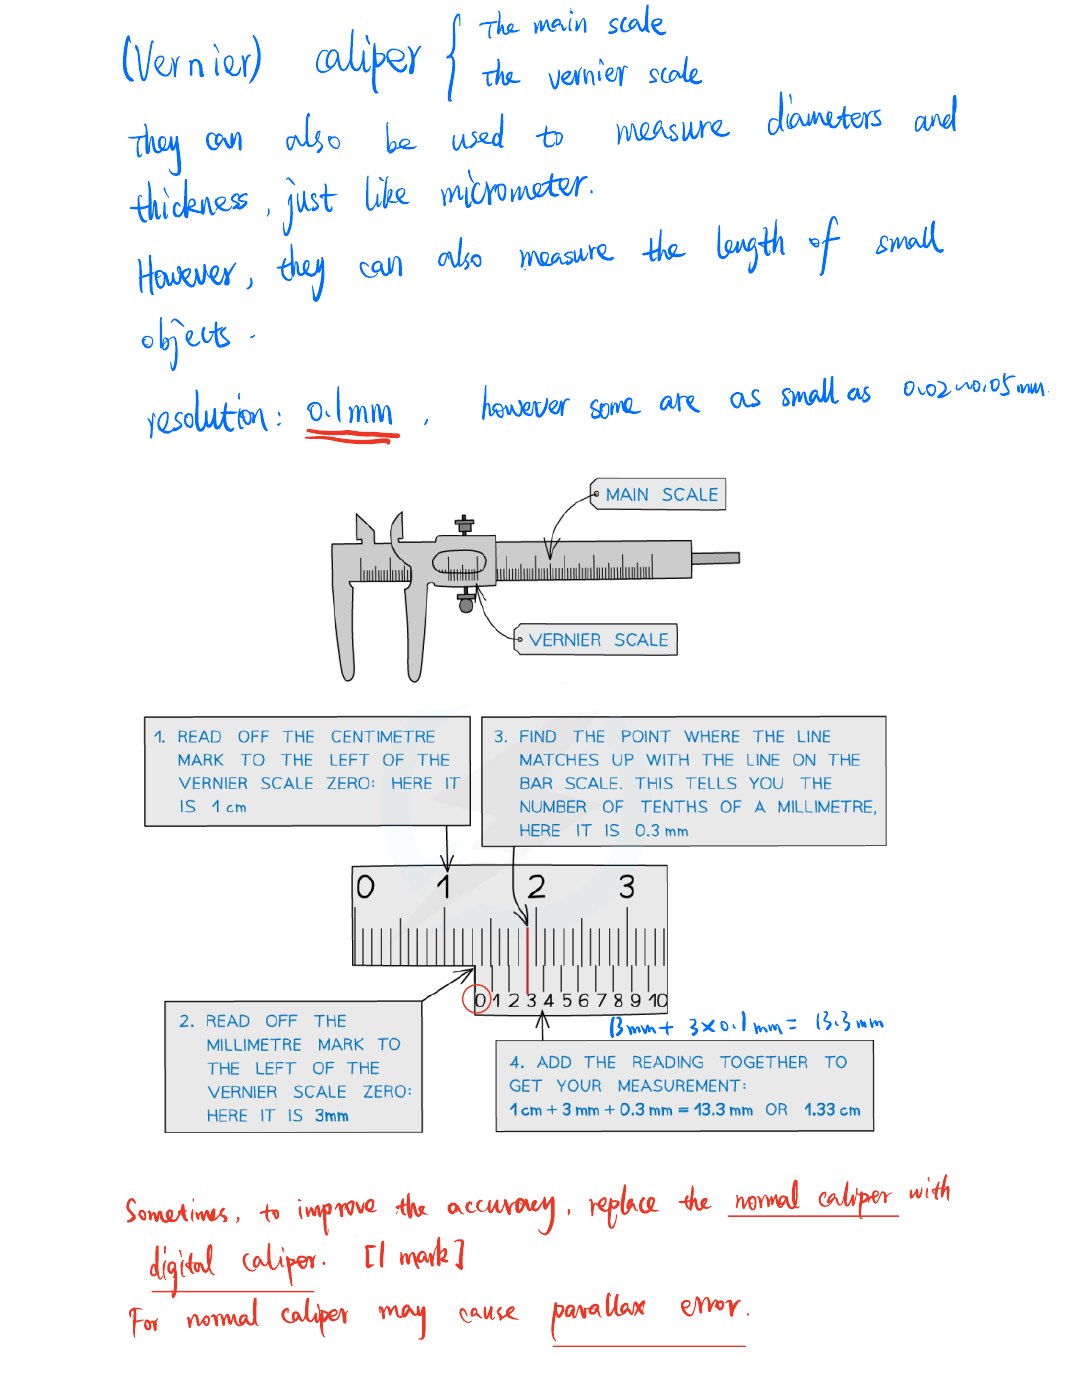 (Vernier) caliper { The main scale
The vernier scale
They can also be used to measure diameters and
thickness, just like micrometer.
However, they can also measure the length of small
objects.
resolution: 0.1mm, however some are as small as 0.02~0.05mm.
MAIN SCALE
VERNIER SCALE
1. READ OFF THE CENTIMETRE
MARK TO THE LEFT OF THE
VERNIER SCALE ZERO: HERE IT
IS 1 cm
3. FIND THE POINT WHERE THE LINE
MATCHES UP WITH THE LINE ON THE
BAR SCALE. THIS TELLS YOU THE
NUMBER OF TENTHS OF A MILLIMETRE,
HERE IT IS 0.3 mm
0 1 2 3
0 1 2 3 4 5 6 7 8 9 10
2. READ OFF THE
MILLIMETRE MARK TO
THE LEFT OF THE
VERNIER SCALE ZERO:
HERE IT IS 3mm
13mm + 3×0.1mm = 13.3mm
4. ADD THE READING TOGETHER TO
GET YOUR MEASUREMENT:
1cm + 3 mm + 0.3 mm = 13.3 mm OR 1.33 cm
Sometimes, to improve the accuracy, replace the normal caliper with
digital caliper. [1 mark]
For normal caliper may cause parallax error.